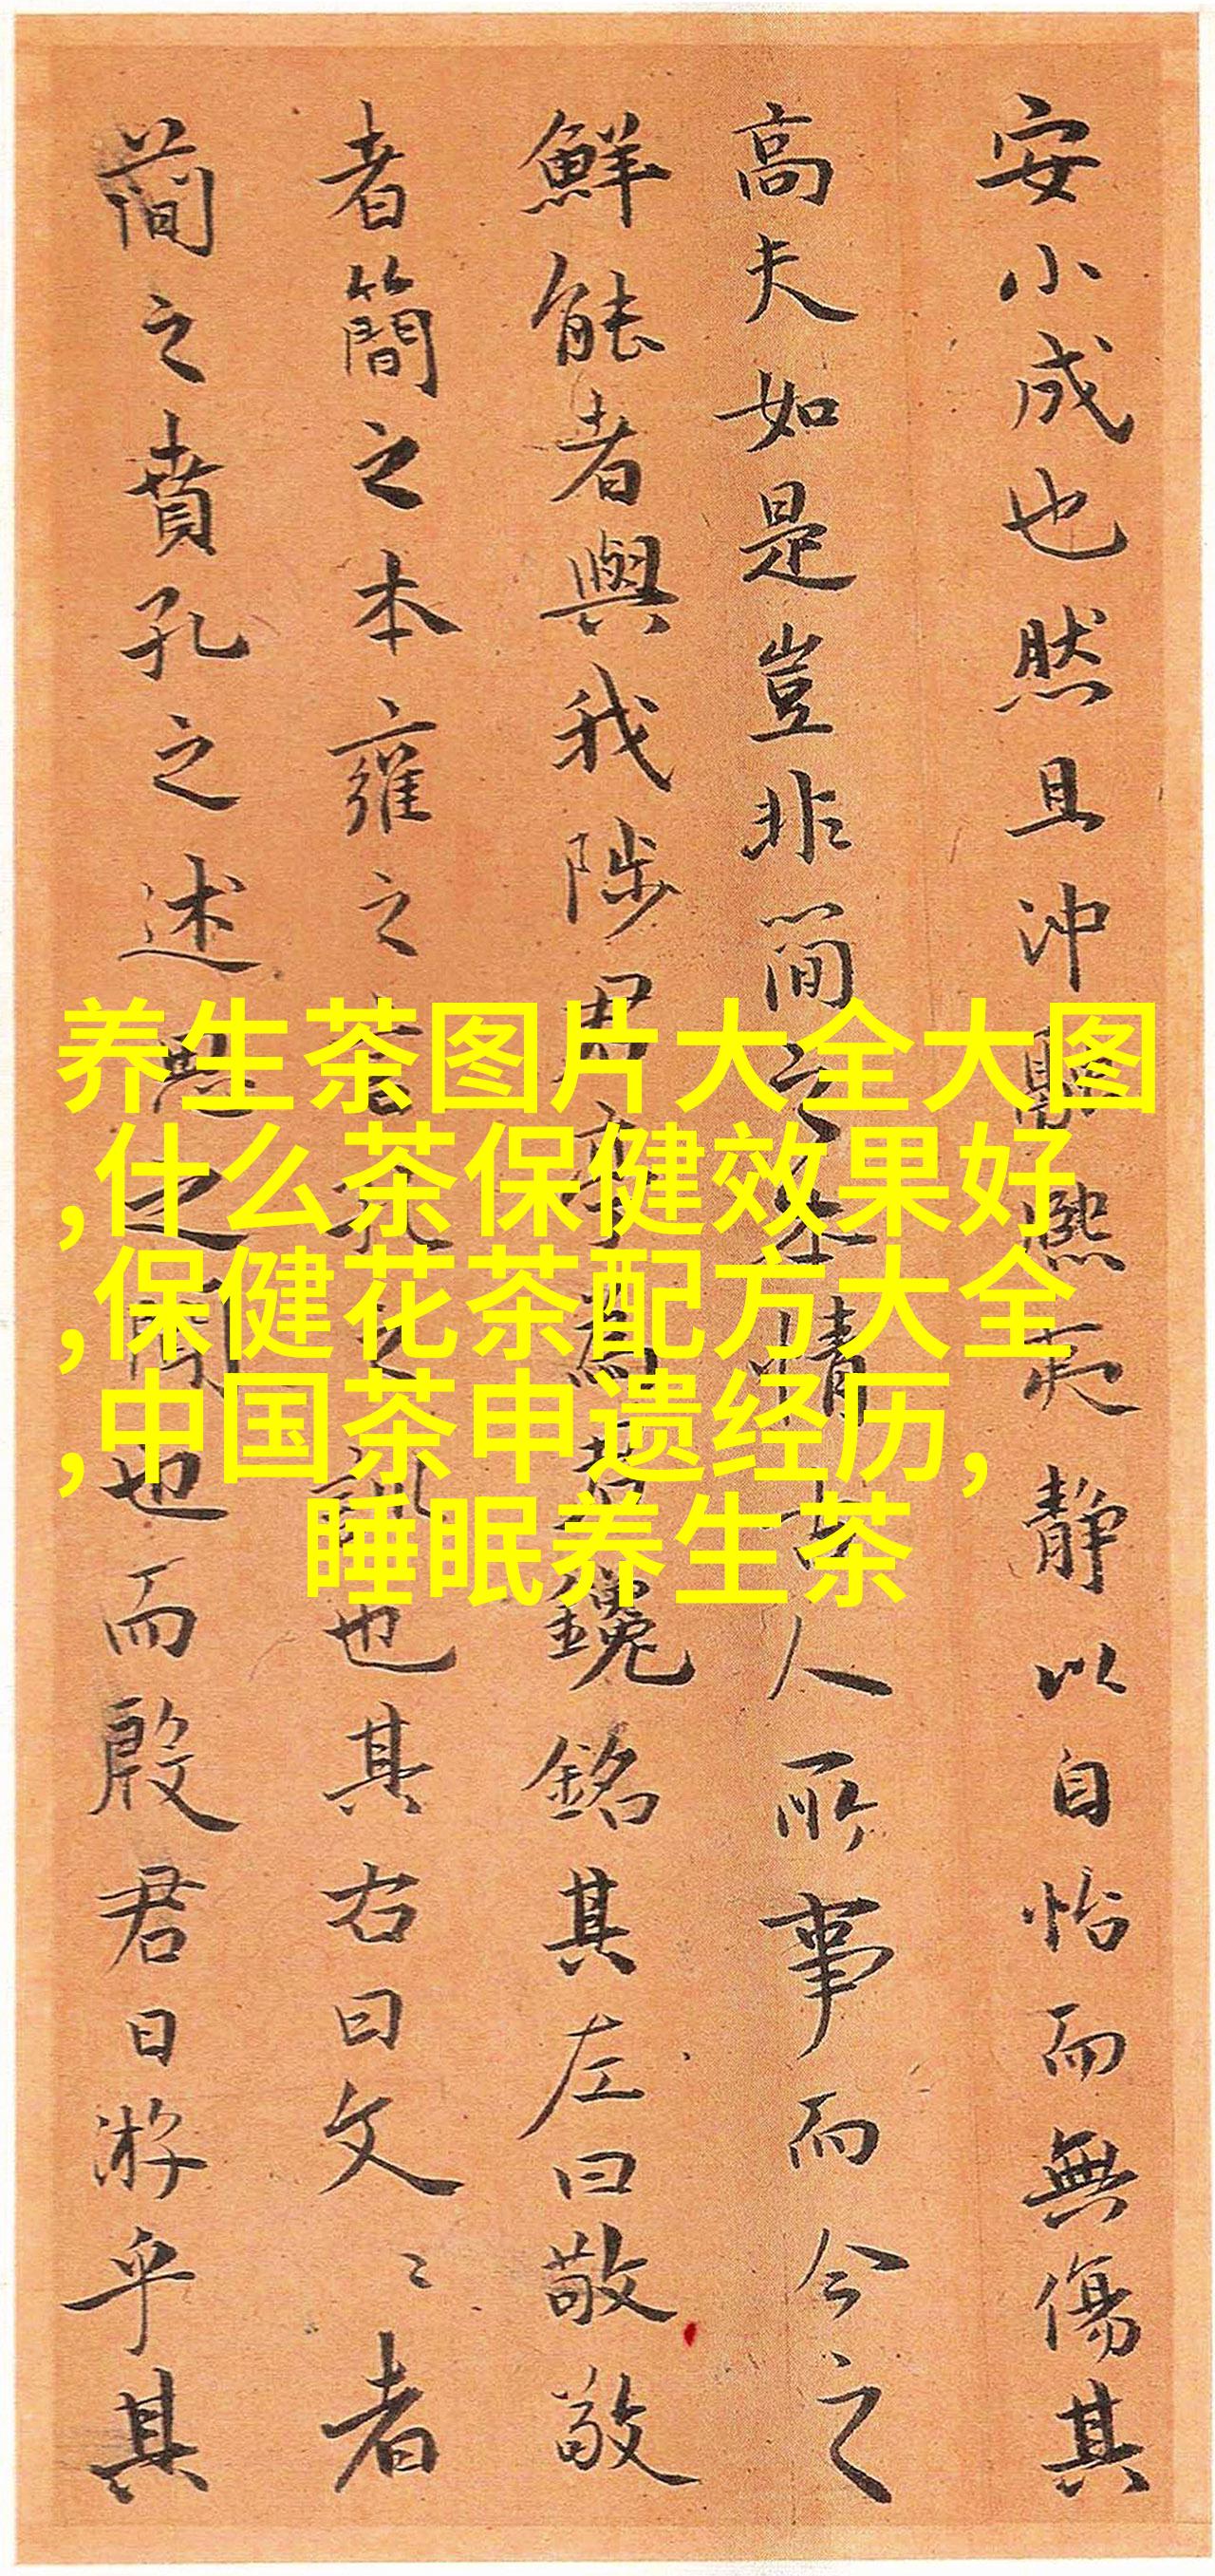 安小成也然且沖熙夷静以自怡而無傷其
高夫如是豈非简之至情古人所事而今之
鮮能者與我陟君亭爲君鑱銘其左曰敬敬
者簡之本雍之言孔之訊也其右曰文〻者
蕳之賁孔之述也而殷君日游乎其
养生茶图片大全大图
,什么茶保健效果好
,保健花茶配方大全
,中国茶申遗经历,
睡眠养生茶